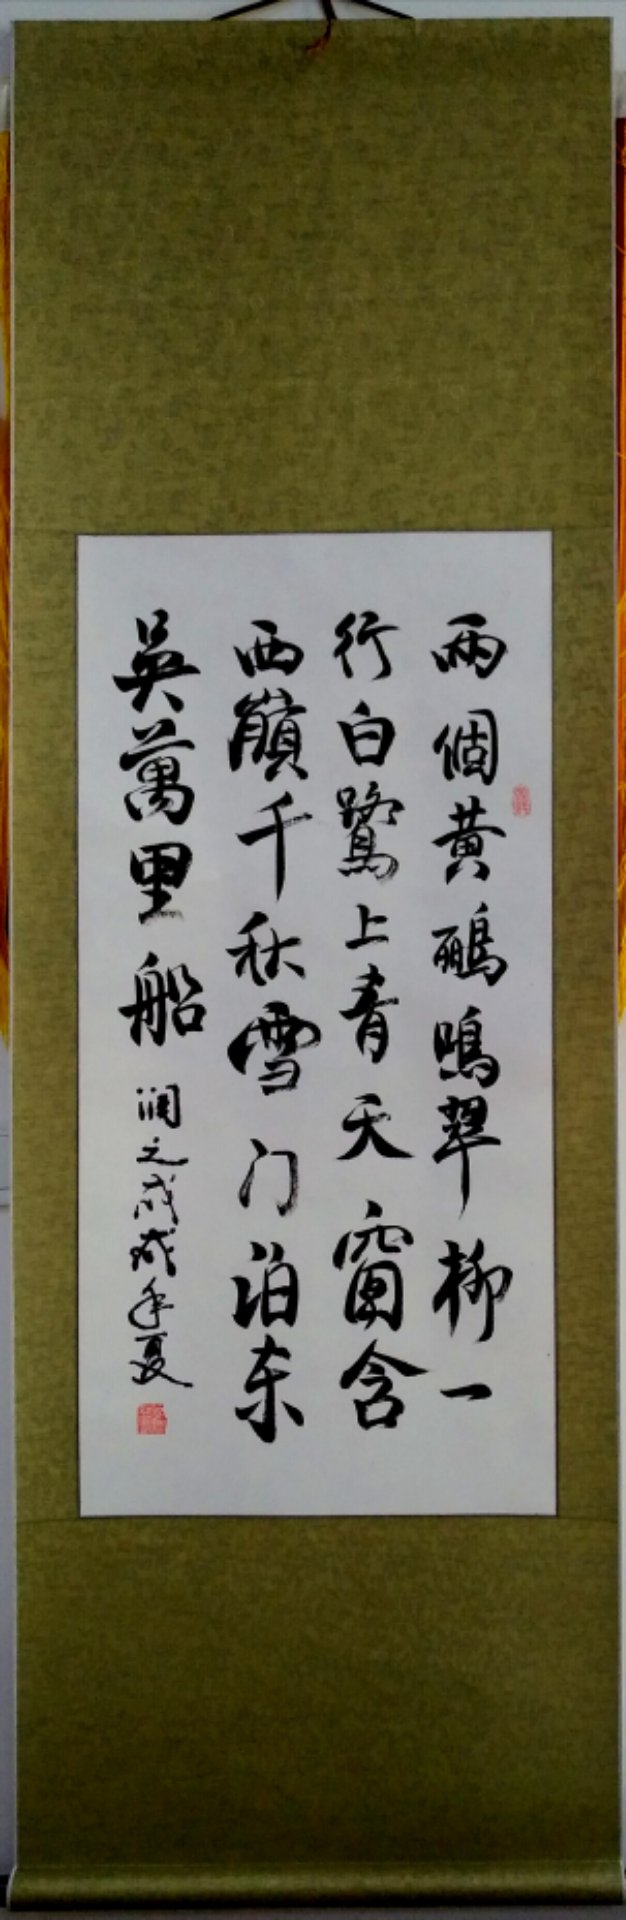 兩個黄鸝鳴翠柳一
行白鷺上青天窗含
西嶺千秋雪门泊东
吳萬里船
润之戊戌年夏